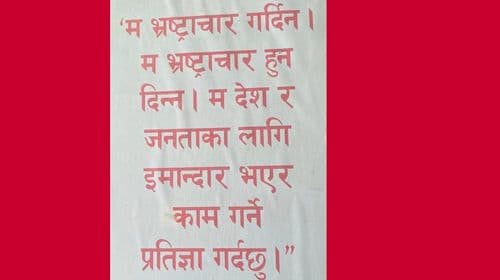 ‘म भ्रष्ट्राचार गर्दिन ।
म भ्रष्ट्राचार हुन
दिन्न । म देश र
जनताका लागि
इमान्दार भएर
काम गर्ने
प्रतिज्ञा गर्दछु ।”